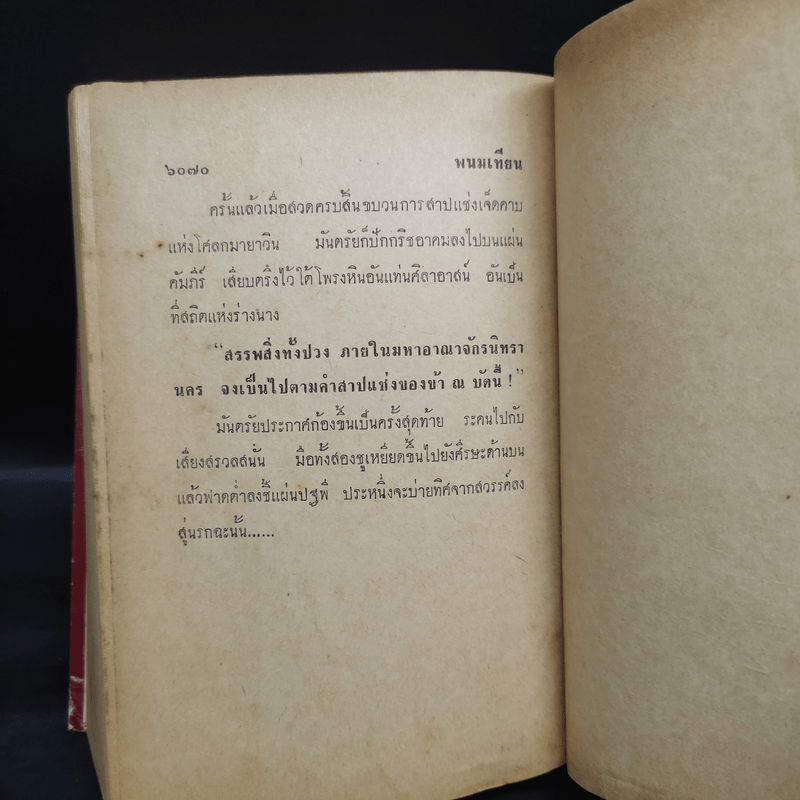 ๖๐๗๐ พนมเทียน
ครั้นแล้วเมื่อสวดครบสิ้นขบวนการสาปแช่งเจ็ดคาบ
แห่งโศลกมายาวิน มันตรัยก็ปักกริชอาคมลงไปบนแผ่น
คัมภีร์ เสียบตรึงไว้ใต้โพรงหินอันแท่นศิลาอาสน์ อันเป็น
ที่สถิตแห่งร่างนาง
“สรรพสิ่งทั้งปวง ภายในมหาอาณาจักรนิทรา
นคร จงเป็นไปตามคำสาปแช่งของข้า ณ บัดนี้ !”
มันตรัยประกาศก้องขึ้นเป็นครั้งสุดท้าย ระคนไปกับ
เสียงสรวลสนั่น มือทั้งสองชูเหยียดขึ้นไปยังศีรษะด้านบน
แล้วฟาดต่ำลงชี้แผ่นปฐพี ประหนึ่งจะบ่ายทิศจากสวรรค์ลง
สู่นรกฉะนั้น......